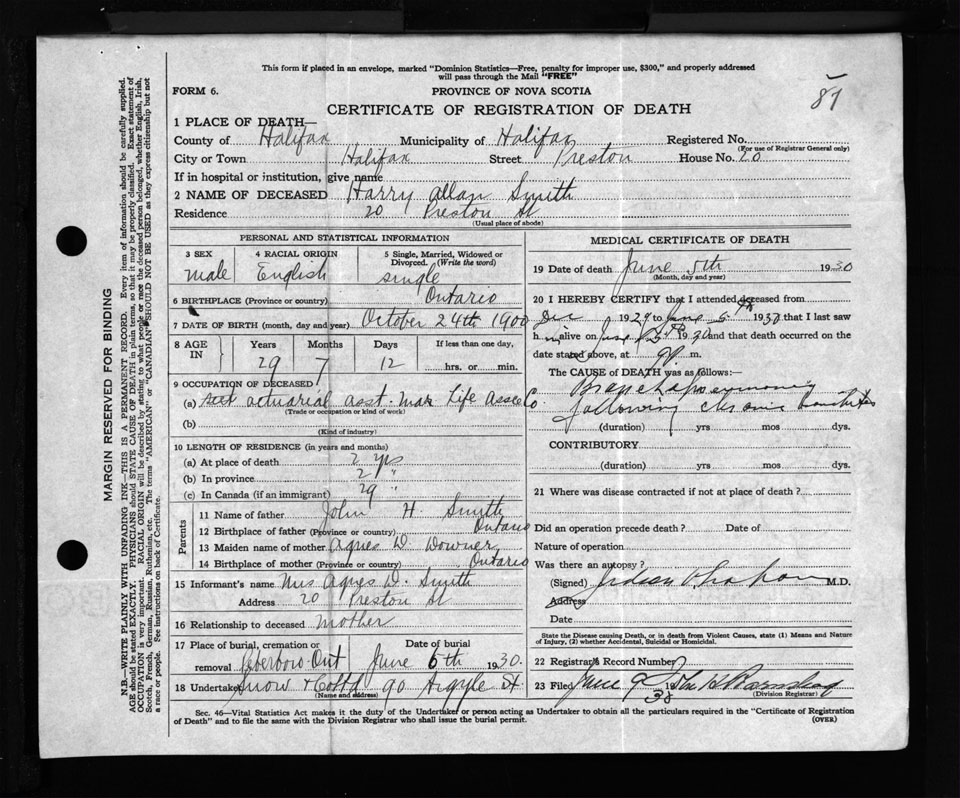 This form if placed in an envelope, marked "Dominion Statistics—Free, penalty for improper use, $300," and properly addressed
will pass through the Mail "FREE"
87
FORM 6.
PROVINCE OF NOVA SCOTIA
CERTIFICATE OF REGISTRATION OF DEATH
1 PLACE OF DEATH—
County of Halifax Municipality of Halifax Registered No.
(For use of Registrar General only)
City or Town Halifax Street Preston House No. 20
If in hospital or institution, give name
2 NAME OF DECEASED Harry Allan Smith
Residence 20 Preston St
(Usual place of abode)
PERSONAL AND STATISTICAL INFORMATION
3 SEX male
4 RACIAL ORIGIN English
5 Single, Married, Widowed or Divorced. (Write the word) single
6 BIRTHPLACE (Province or country) Ontario
7 DATE OF BIRTH (month, day and year) October 24th 1900
8 AGE IN Years 29 Months 7 Days 12 If less than one day, hrs. or min.
9 OCCUPATION OF DECEASED
(a) actuarial asst. Mar Life Assce Co
(Trade or occupation or kind of work)
(b)
(Kind of industry)
10 LENGTH OF RESIDENCE (in years and months)
(a) At place of death 2 yrs
(b) In province 2 "
(c) In Canada (if an immigrant) 29 "
Parents
11 Name of father John H. Smith
12 Birthplace of father (Province or country) Ontario
13 Maiden name of mother Agnes D. Downer
14 Birthplace of mother (Province or country) Ontario
15 Informant's name Mrs Agnes D. Smith
Address 20 Preston St
16 Relationship to deceased Mother
17 Place of burial, cremation or removal Ont
Date of burial June 6th 1930.
18 Undertaker Snow & Co Ltd 90 Argyle St
(Name and address)
MEDICAL CERTIFICATE OF DEATH
19 Date of death June 5th 1930
(Month, day and year)
20 I HEREBY CERTIFY that I attended deceased from
Dec 1929 to June 5th 1930 that I last saw
him alive on June 5th 1930 and that death occurred on the
date stated above, at 9 p. m.
The CAUSE OF DEATH was as follows:—
Bronchopneumonia
following chronic bronchitis
(duration) yrs mos dys.
CONTRIBUTORY
(duration) yrs mos dys.
21 Where was disease contracted if not at place of death?
Did an operation precede death? Date of
Nature of operation
Was there an autopsy?
(Signed) M.D.
Address
Date
State the Disease causing Death, or in death from Violent Causes, state (1) Means and Nature
of Injury, (2) whether Accidental, Suicidal or Homicidal.
22 Registrar's Record Number
23 Filed June 9 1930
(Division Registrar)
Sec. 46—Vital Statistics Act makes it the duty of the Undertaker or person acting as Undertaker to obtain all the particulars required in the "Certificate of Registration
of Death" and to file the same with the Division Registrar who shall issue the burial permit.
(OVER)
MARGIN RESERVED FOR BINDING
N.B.—WRITE PLAINLY WITH UNFADING INK—THIS IS A PERMANENT RECORD. Every item of information should be carefully supplied.
AGE should be stated EXACTLY. PHYSICIANS should STATE CAUSE OF DEATH in plain terms, so that it may be properly classified. Exact statement of
OCCUPATION is very important. RACIAL ORIGIN will be described by stating to what people or race the deceased person belonged, whether English, Irish,
Scotch, French, German, Russian, Ruthenian, etc. The terms "AMERICAN" or "CANADIAN" SHOULD NOT BE USED as they express citizenship but not
a race or people. See instructions on back of Certificate.